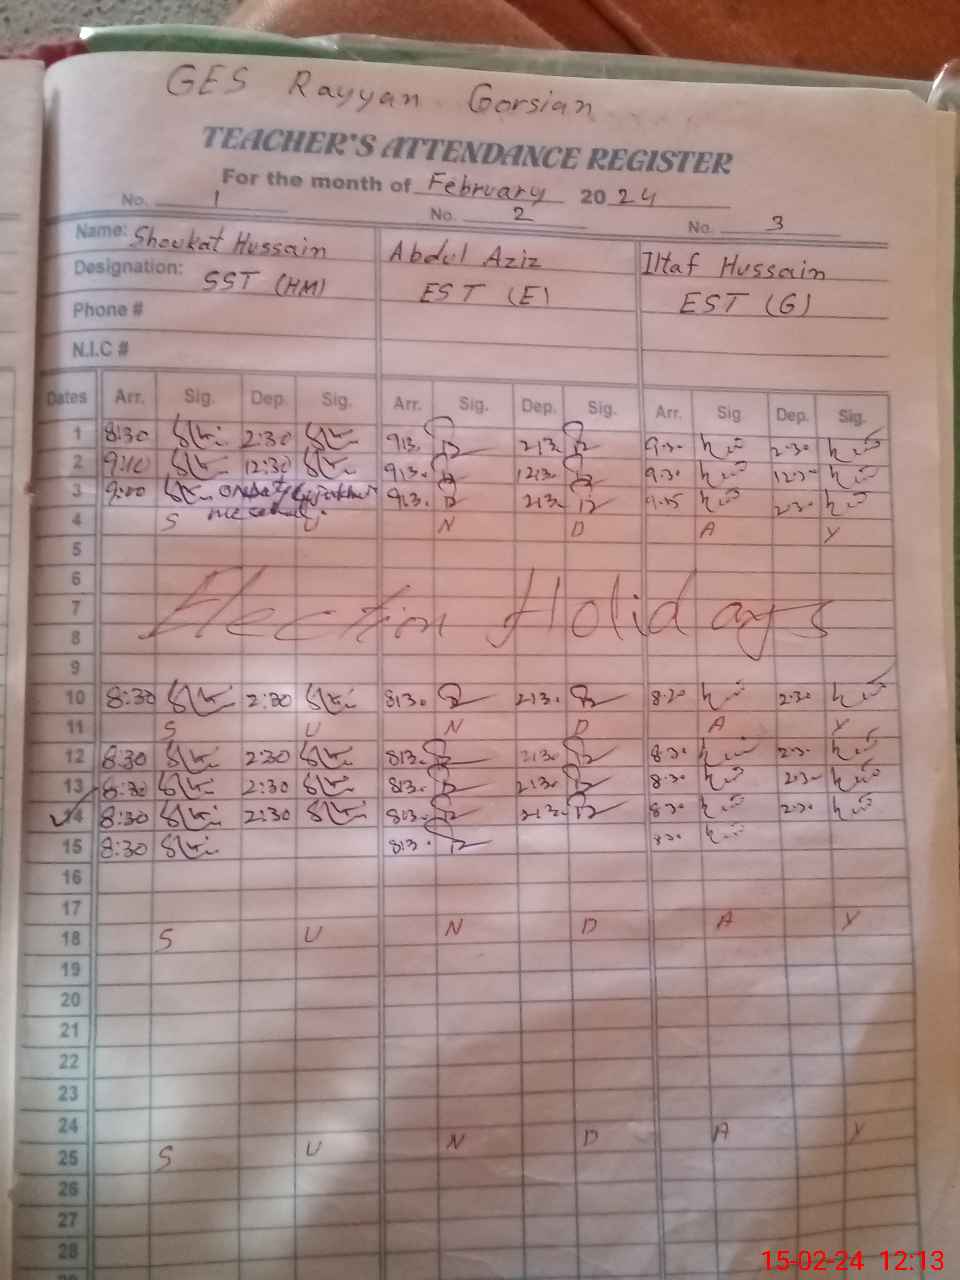 GES Rayyan Gorsian
TEACHER'S ATTENDANCE REGISTER
For the month of February 2024
No. 1 No. 2 No. 3
Name: Shoukat Hussain Abdul Aziz Iltaf Hussain
Designation: SST (HM) EST (E) EST (G)
Phone #
N.I.C #
Dates Arr. Sig. Dep. Sig. Arr. Sig. Dep. Sig. Arr. Sig Dep. Sig.
1 8:30 2:30 913. 213. 9.30 2.30
2 9:10 12:30 913. 1213. 9.30 12.30
3 9:00 on duty 913. 213. 9.15 2.30
4 S U N D A Y
5
6
7 Election Holidays
8
9
10 8:30 2:30 813. 213. 8.30 2.30
11 S U N D A Y
12 8:30 2:30 813. 213. 8.30 2.30
13 8:30 2:30 813. 213. 8.30 2.30
14 8:30 2:30 813. 213. 8.30 2.30
15 8:30 813. 8.30
16
17
18 S U N D A Y
19
20
21
22
23
24
25 S U N D A Y
26
27
28
15-02-24 12:13